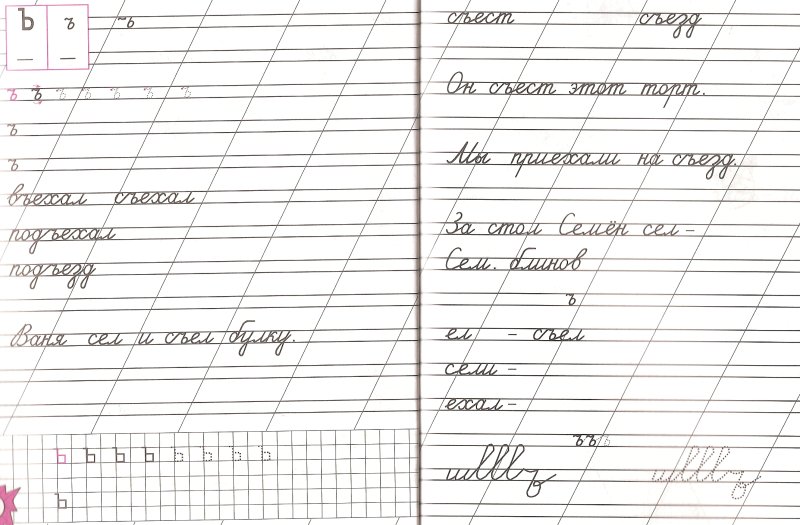 Ъ ъ ъ
ъ ъ ъ ъ ъ ъ ъ
ъ
ъ
въехал съехал
подъехал
подъезд
Ваня сел и съел булку.
ъ ъ ъ ъ ъ ъ ъ ъ
ъ
съест съезд
Он съест этот торт.
Мы приехали на съезд.
За стол Семён сел –
Съел. блинов
ъ
ел – съел
сели –
ехал –
ъъъ